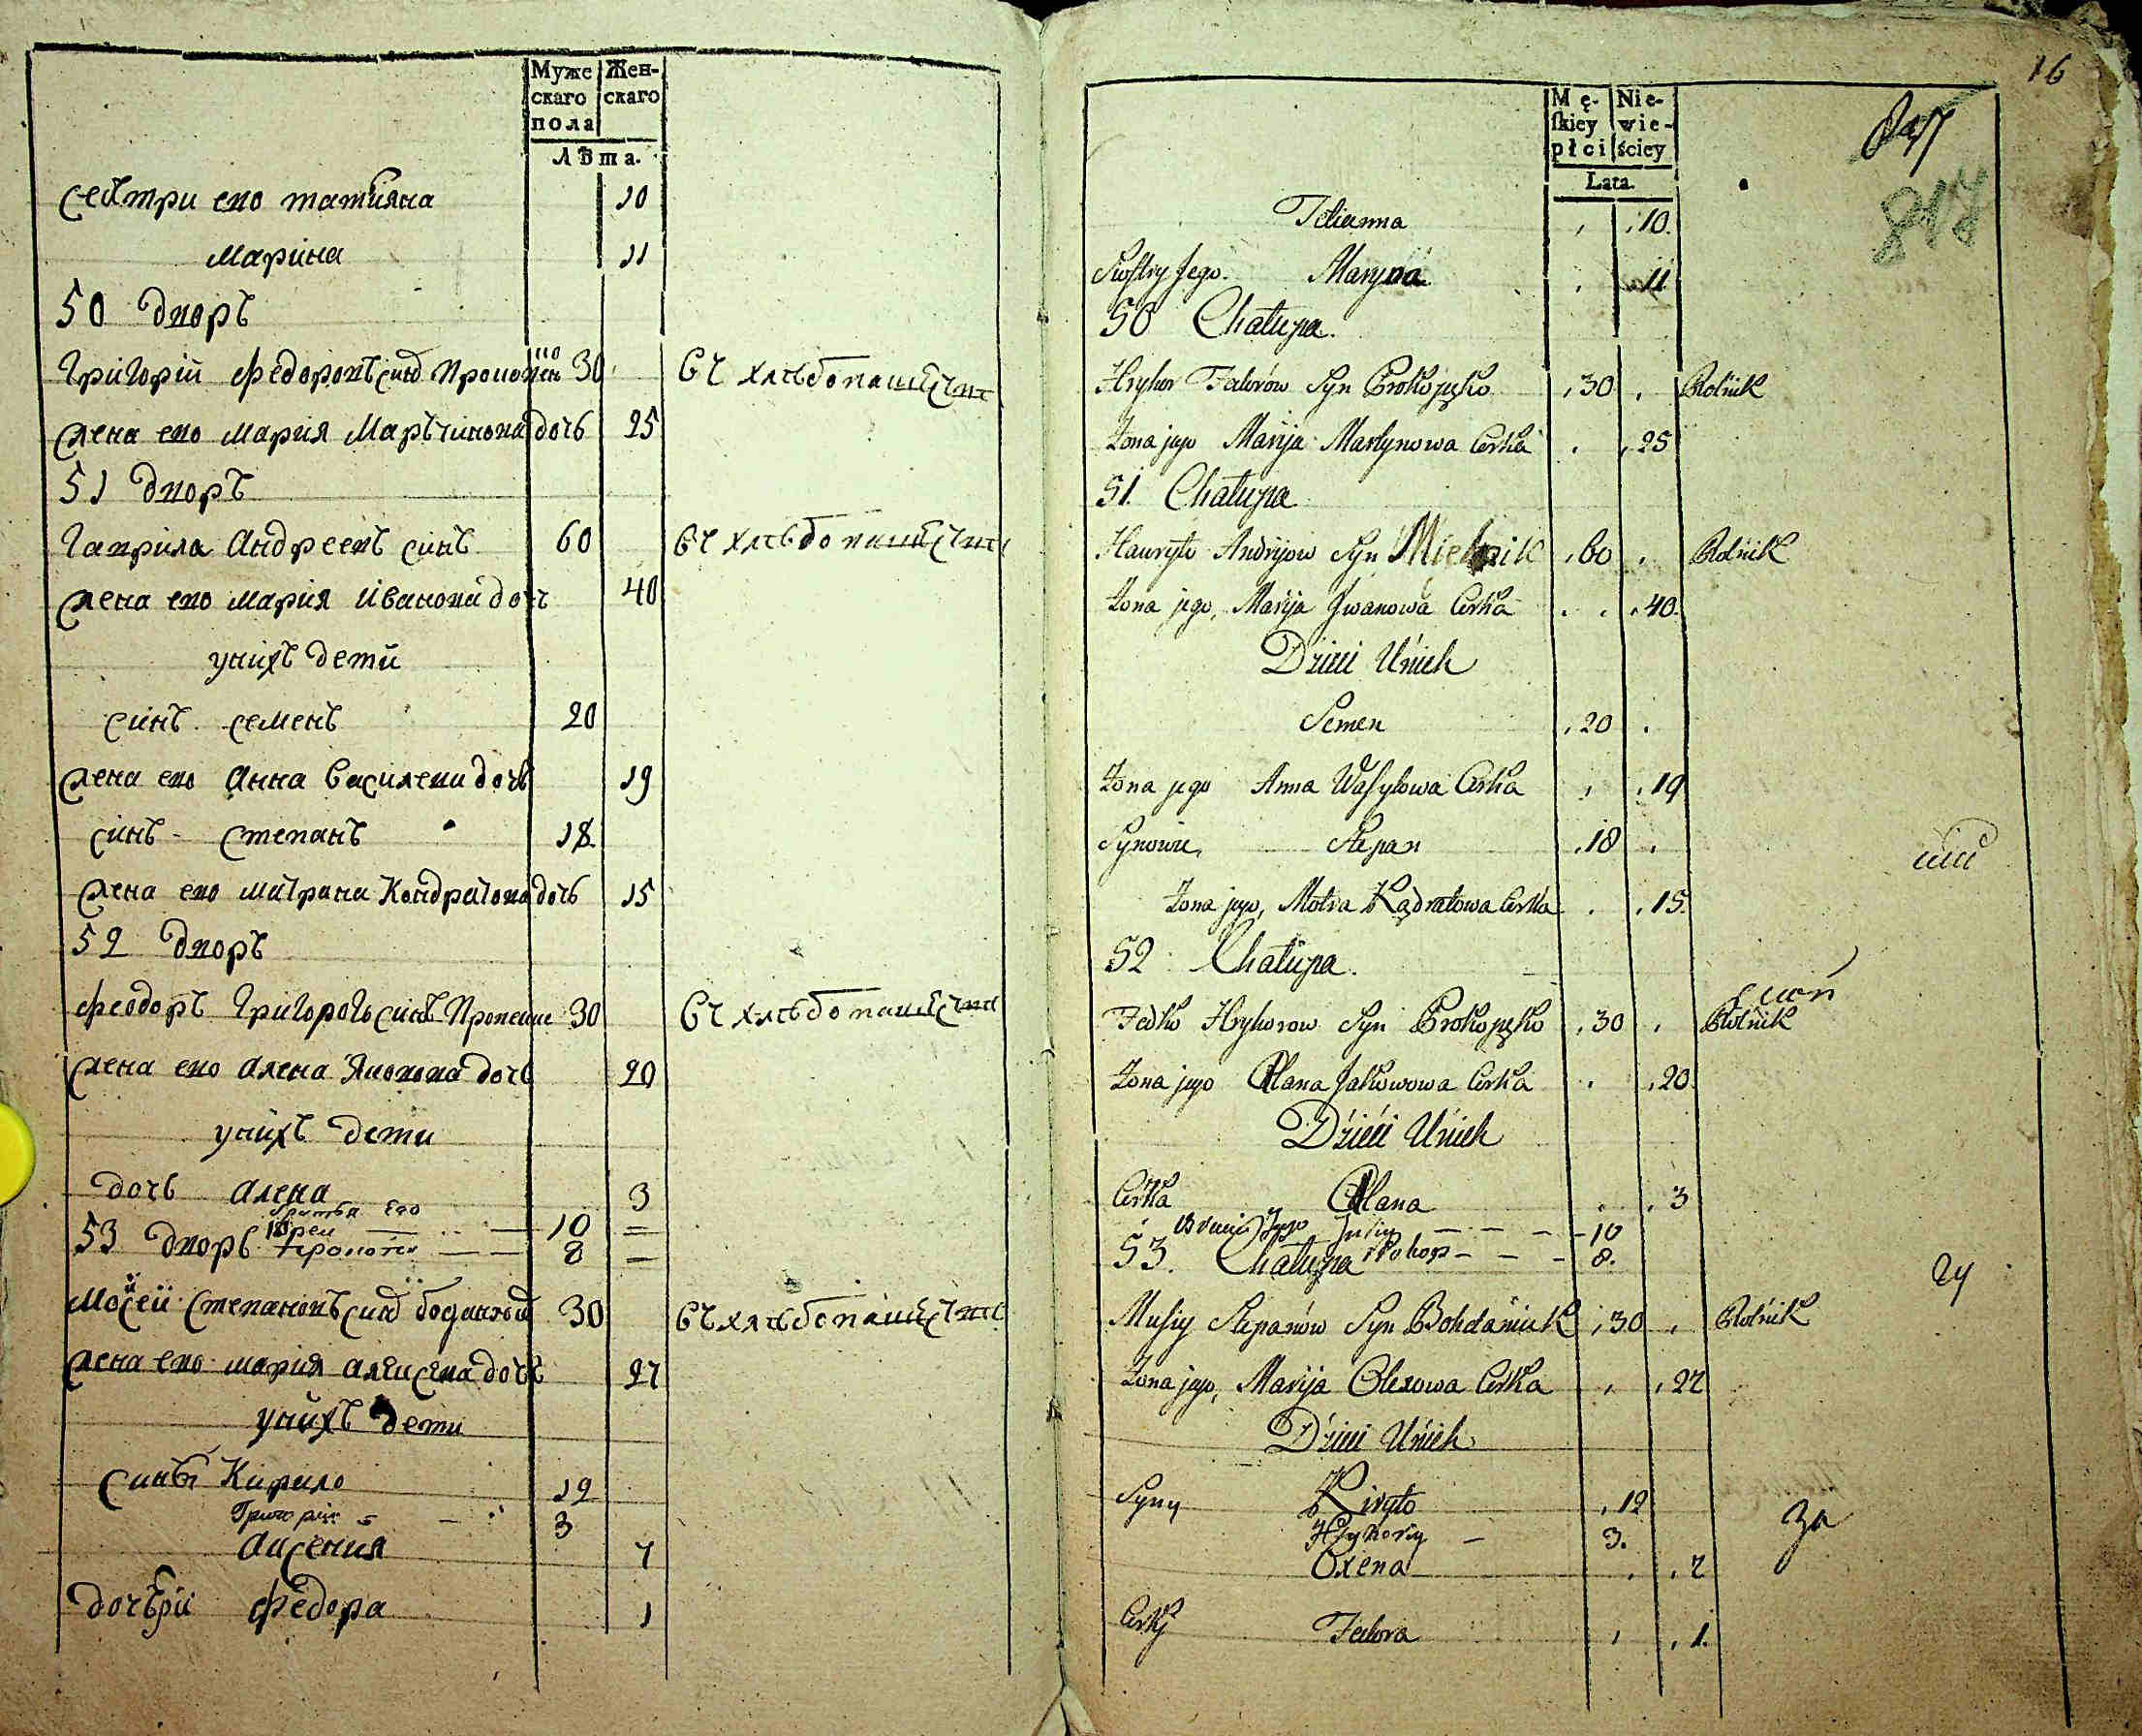 Муже Жен-
скаго скаго
пола
лѣта.
сестри его татияна 10
марина 11
50 дворъ
Григорий Федоровъ синъ 30
жена его мария Мартинова дочь 25
51 дворъ
Гаврила Андреевъ синъ 60
жена его мария Иванова дочь 40
унихъ дети
синъ семенъ 20
жена его Анна Василева дочь 19
синъ - степанъ 18
жена его матрина Кондратова дочь 15
52 дворъ
Феодоръ Григоровъ синъ 30
жена его алена Яковова дочь 20
унихъ дети
дочь алена 3
братья его
10 =
53 дворъ
8 —
Мосеи Степановъ синъ 30
жена его мария дочь 27
унихъ дети
сини Кирило 12
Григории 3
Аксения 7
дочери федора 1
16
817
Mę- Nie-
ſkiey wie-
płci ściey
Lata.
Tetianna 10.
Siostry Jego. Maryna 11
50 Chałupa.
Hryhor Fedorów Syn Prokopęko 30 Rolnik
Zona jego Marija Martynowa Corka 25
51. Chałupa
Hauryło Andryjow Syn Mielnik 60 Rolnik
Zona jego, Marija Jwanowa Corka 40.
Dzieci Unich
Semen 20
Zona jego Anna Wasylowa Corka 19
Synowie, Stepan 18
Zona jego, Motra Kądratowa Corka 15.
52 Chałupa.
Fedko Hryhorow Syn Prokopęko 30 Rolnik
Zona jego Olana Jakowowa Corka 20.
Dzieci Unich
Corka Olana 3
Bracia Jego - - - 10
53. Chałupa Prokop - - - 8.
Musiy Stepanów Syn Bohdaniuk 30 Rolnik
Zona jego, Marija Olexowa Corka 27
Dzieci Unich
Syny Kiryło 12
Hryhoriy - 3.
Oxena 7
Corky Fedora 1.